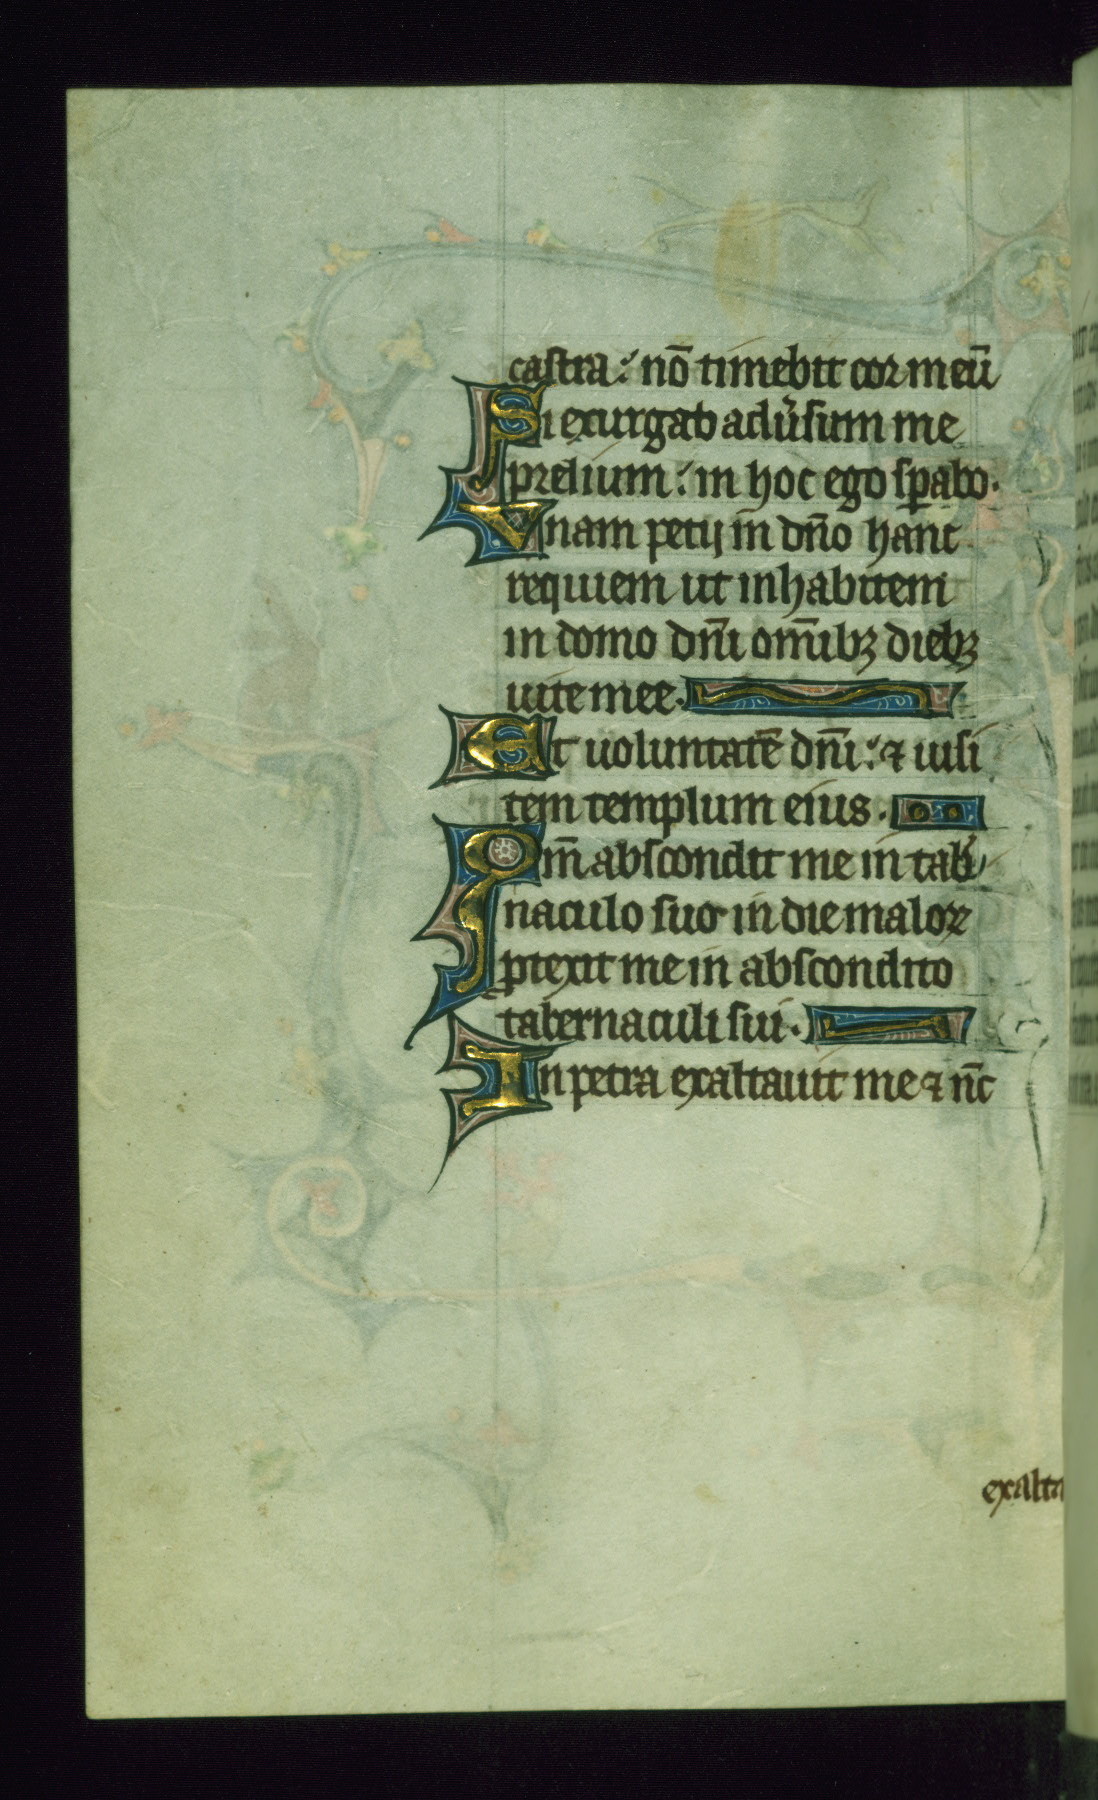 castra: nō timebit cor meū
Si exurgat adu̓sum me
prelium: in hoc ego sꝑabo.
Vnam petij in dn̄o hanc
requiem ut inhabitem
in domo dn̄i om̄ibꝫ diebꝫ
uite mee.
Et uoluntatē dn̄i: ⁊ uisi
tem templum eius.
Qm̄ abscondit me in tab̓
naculo suo in die maloꝝ
ꝓtexit me in abscondito
tabernaculi sui.
In petra exaltauit me ⁊ nc̄
exalta